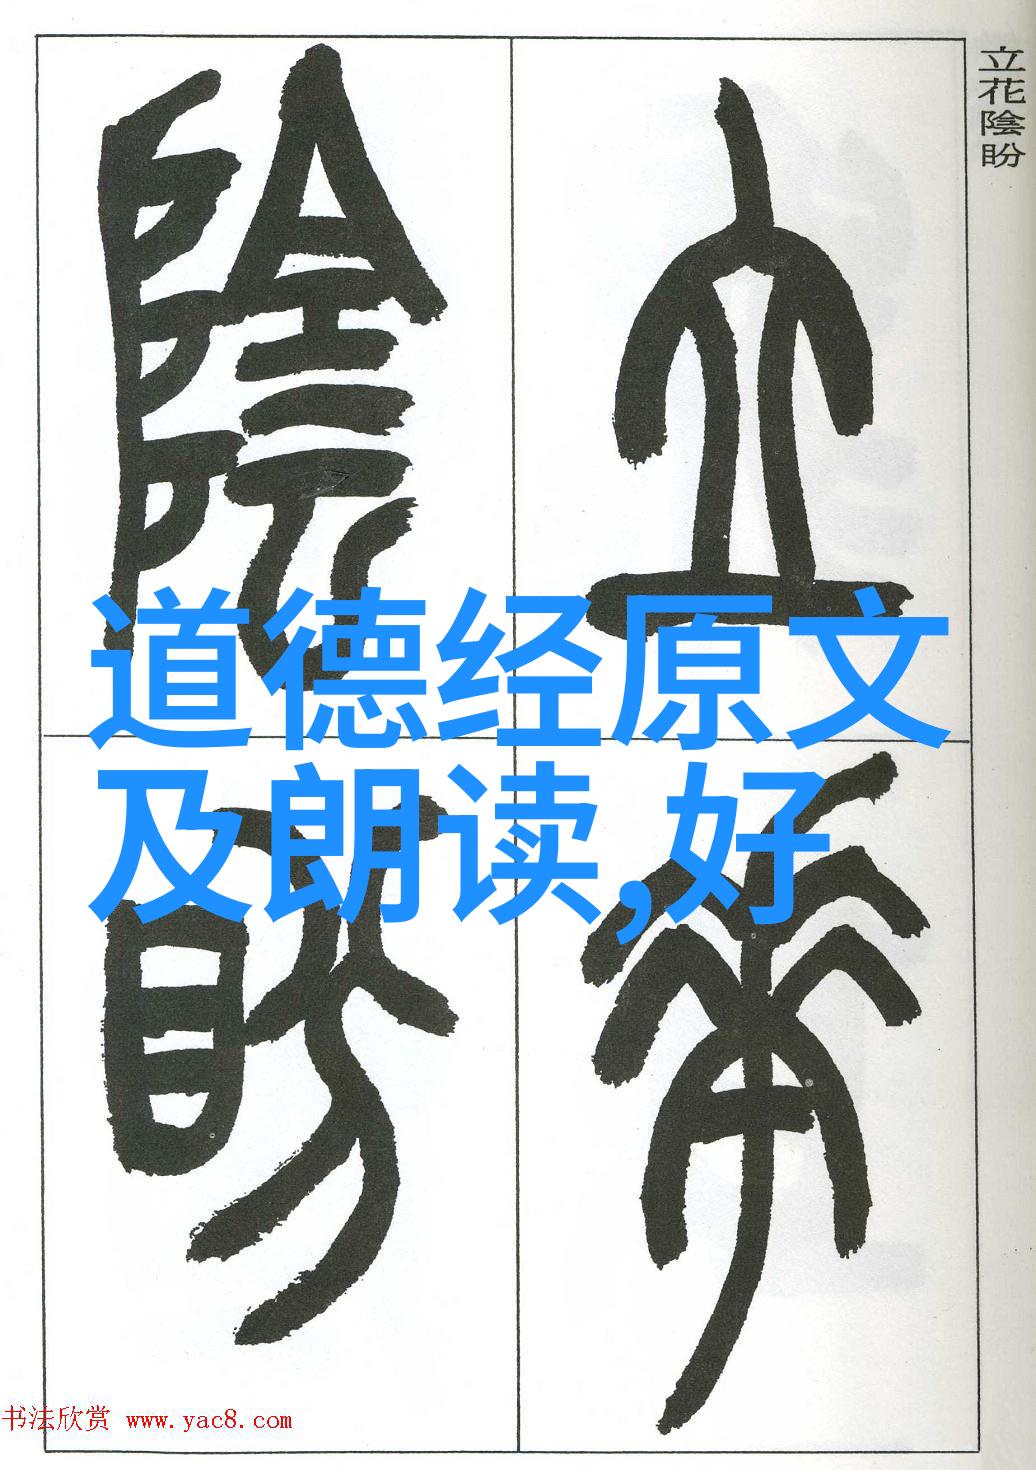 立花陰盼
立
花
陰
盼
道德经原文
及朗读,好
书法欣赏 www.yac8.com